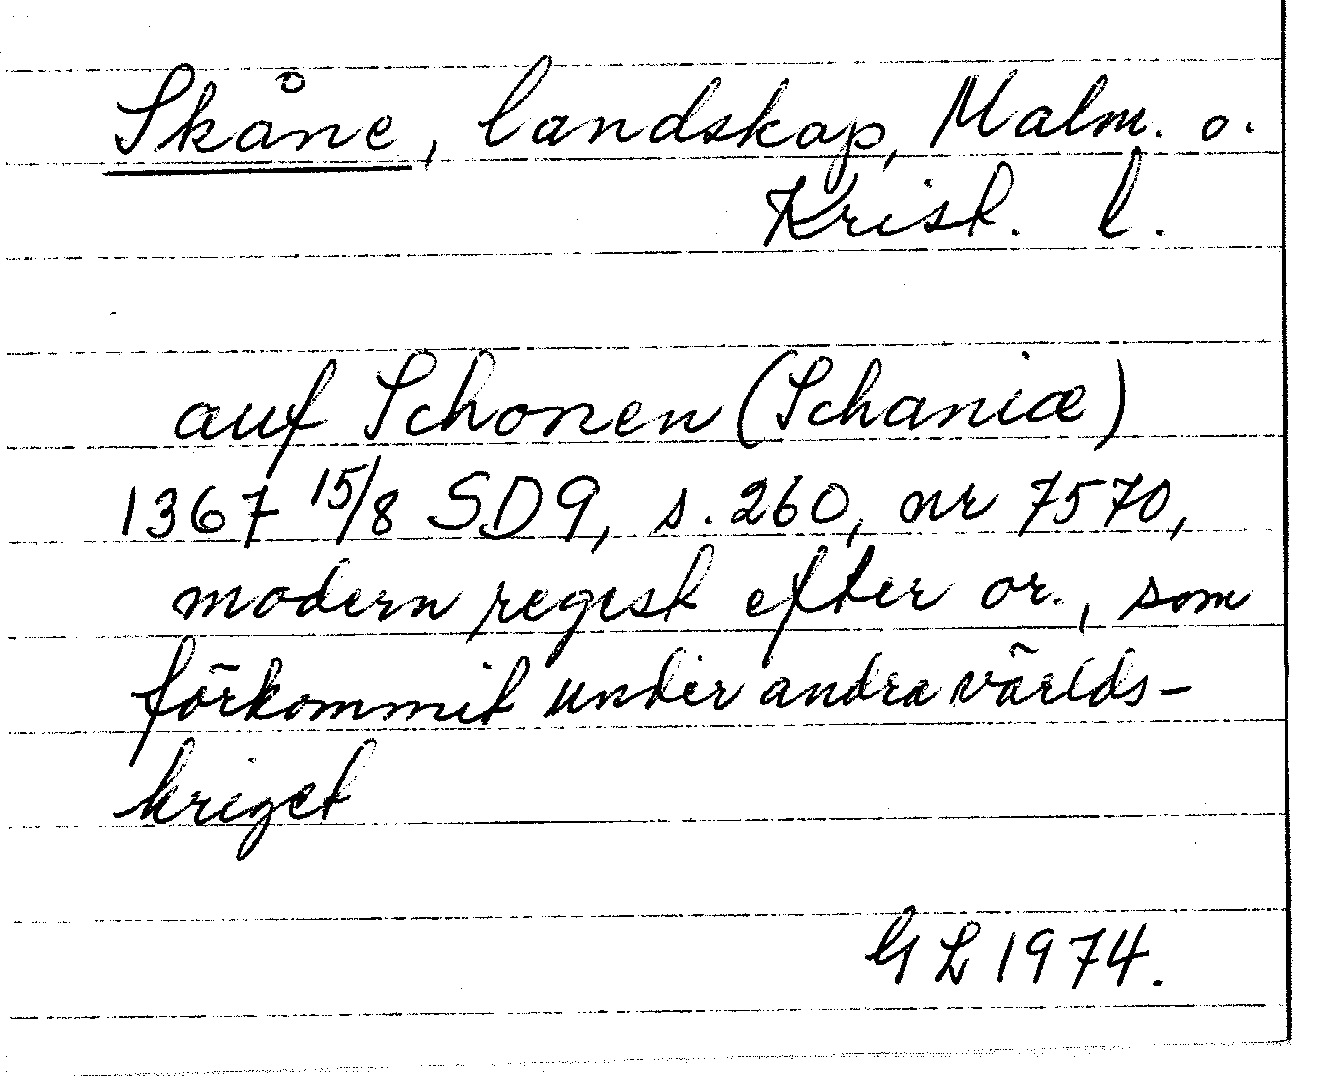 Skåne, landskap, Malm. o.
Krist. l.
auf Schonen (Schaniæ)
1367 15/8 SD9, s. 260, nr 7570,
modern regest efter or., som
förkommit under andra världs-
kriget
GL 1974.